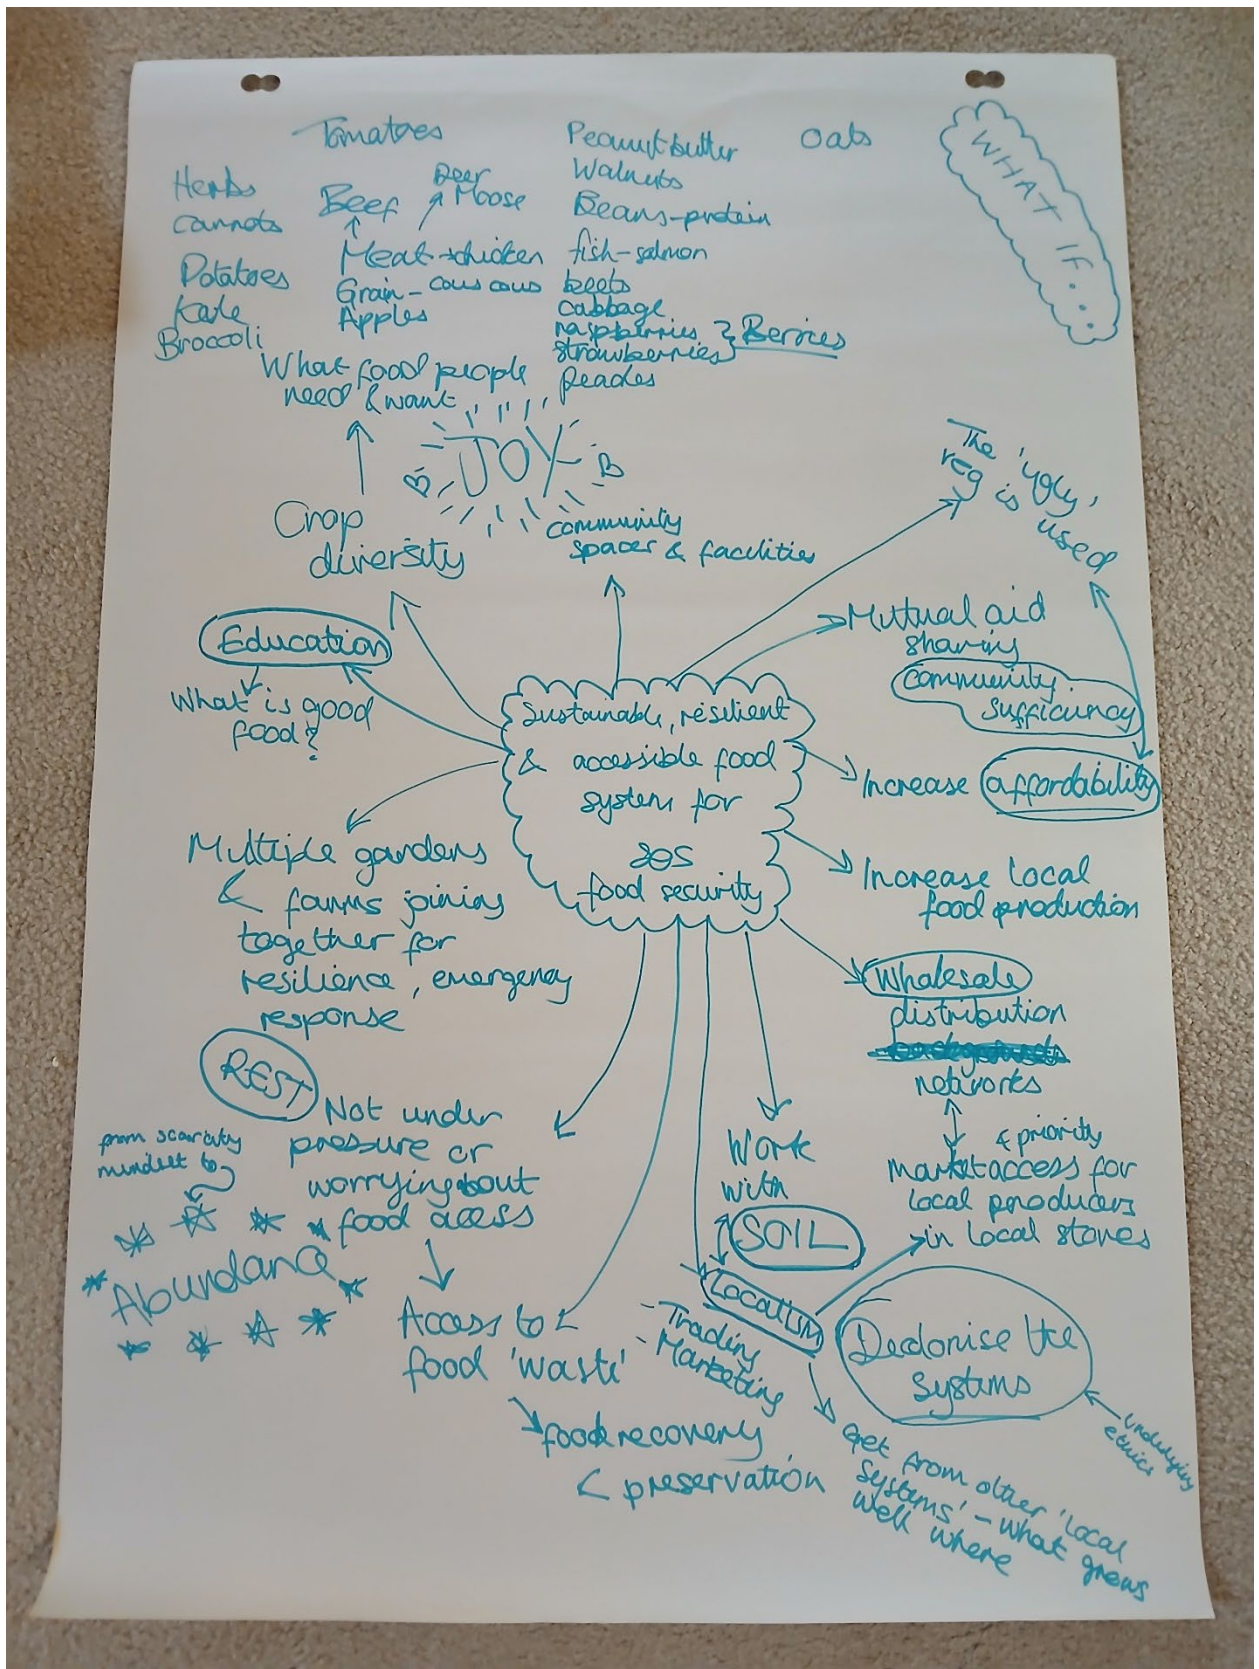 WHAT IF...
Tomatoes
Peanutbutter
Oats
Herbs
Carrots
Potatoes
Kale
Broccoli
Beef
Deer
Moose
Meat → chicken
Grain - cous cous
Apples
Walnuts
Beans - protein
fish - salmon
beets
cabbage
raspberries
strawberries
Berries
peaches
What food people
need & want
JOY
Crop
diversity
community
spaces & facilities
The 'ugly'
veg is used
Education
What is good
food?
Mutual aid
sharing
Community
sufficiency
Sustainable, resilient
& accessible food
system for
food security
Increase affordability
Increase local
food production
Multiple gardens
& farms joining
together for
resilience, emergency
response
Wholesale
distribution
networks
& priority
market access for
local producers
in local stores
REST
Not under
pressure or
worrying about
food access
from scarcity
mindset to
Abundance
Work
with
SOIL
Localism
- Trading
- Marketing
Access to
food 'waste'
food recovery
& preservation
Decolonise the
systems
underlying
ethics
Get from other 'local
systems' - what grows
well where